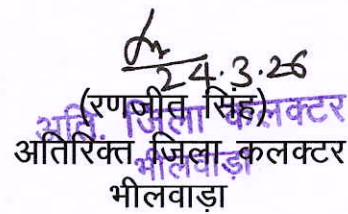 24.3.26
(रणजीत सिंह)
अति. जिला कलक्टर
अतिरिक्त जिला कलक्टर
भीलवाड़ा
भीलवाड़ा